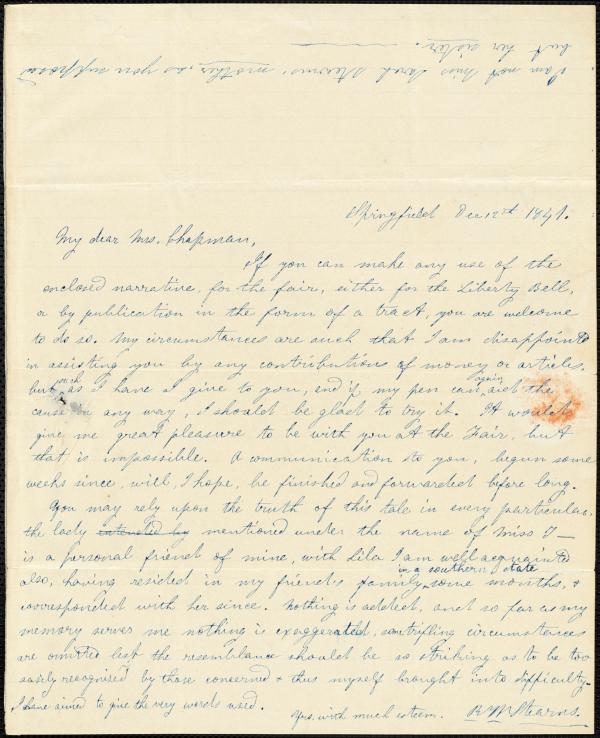 I am not Miss Sarah Stearns' mother, as you supposed
but her sister.
Springfield Dec 12th 1841.
My dear Mrs. Chapman,
If you can make any use of the
enclosed narrative, for the fair, either for the Liberty Bell,
or by publication in the form of a tract, you are welcome
to do so. My circumstances are such that I am disappointed
in assisting you by any contributions of money or articles.
but such as I have I give to you, and if my pen can again aid the
cause in any way, I should be glad to try it. It would
give me great pleasure to be with you at the Fair, but
that is impossible. A communication to you, begun some
weeks since, will, I hope, be finished and forwarded before long.
You may rely upon the truth of this tale in every particular,
the lady mentioned under the name of Miss T—
is a personal friend of mine, with Lila I am well acquainted
also, having resided in my friend's family in a southern state some months, &
corresponded with her since. Nothing is added, and so far as my
memory serves me nothing is exaggerated, some trifling circumstances
are omitted lest the resemblance should be so striking as to be too
easily recognised by those concerned & thus myself brought into difficulty.
I have aimed to give the very words used.
Yrs. with much esteem. R M Stearns.